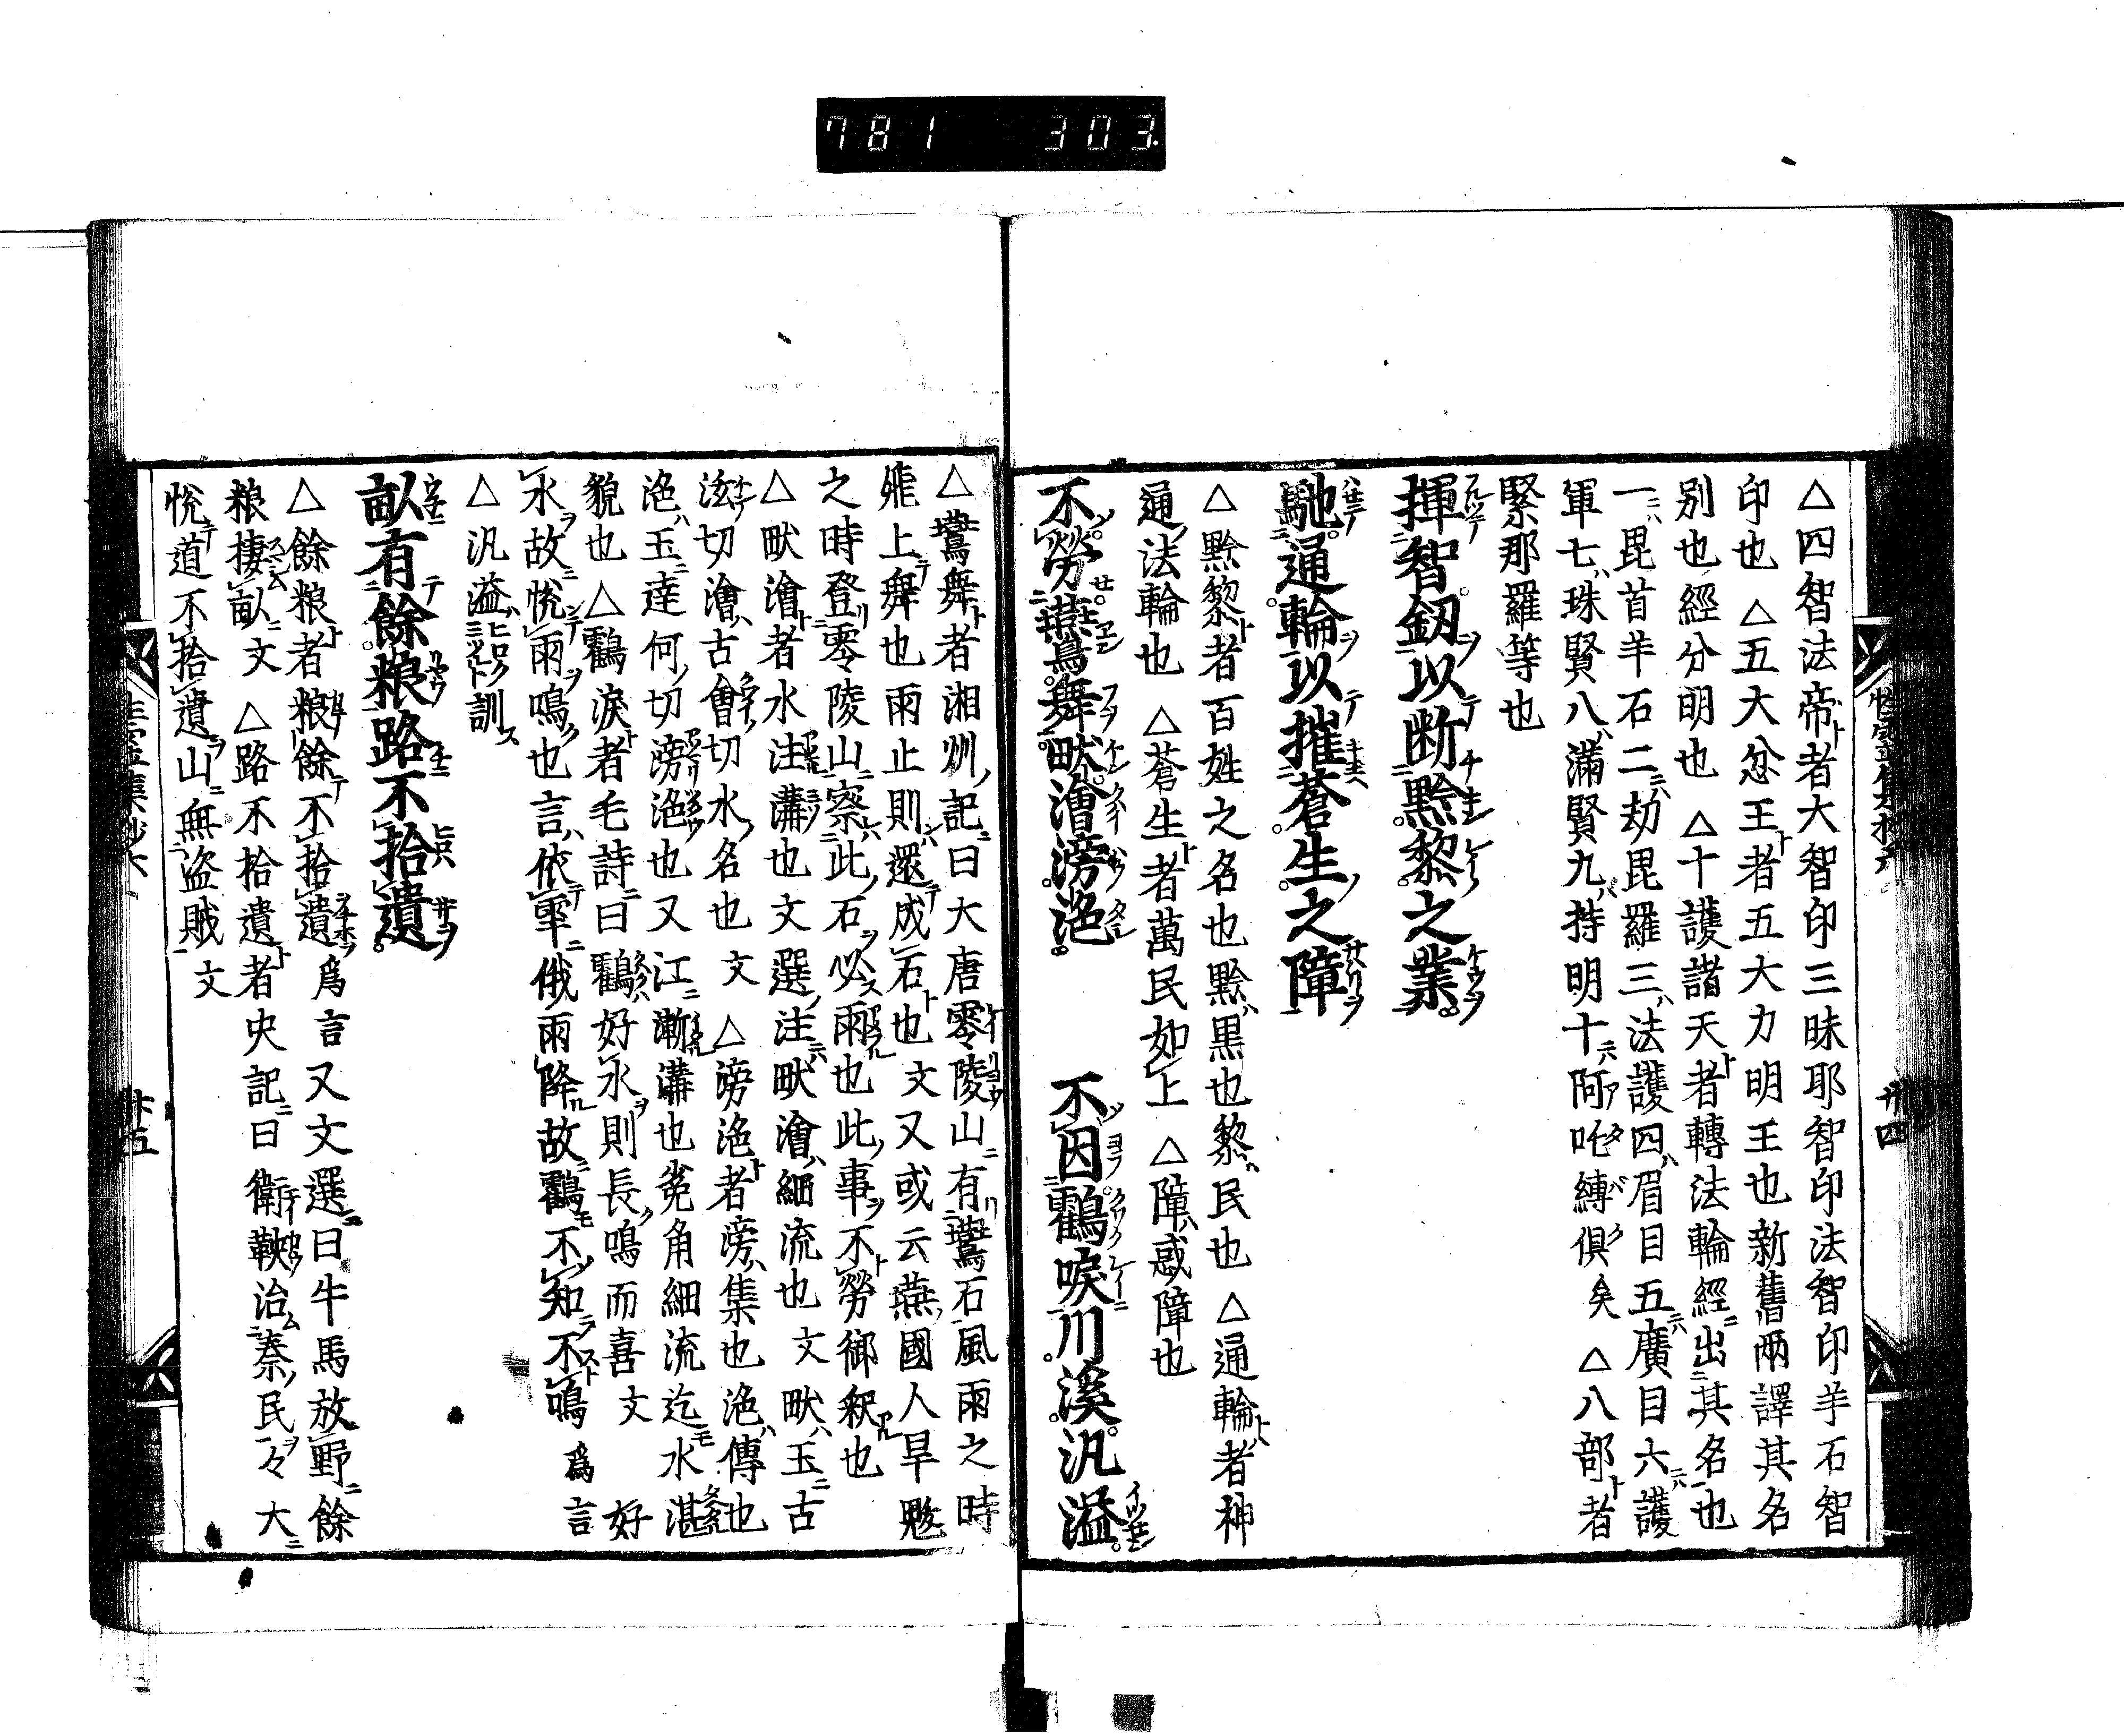 781 303
△四智法帝者大智印三昧耶智印法智印羊石智
印也△五大忿王者五大力明王也新舊兩譯其名
別也經分明也△十護諸天者轉法輪經出其名也
一毘首羊石二劫毘羅三法護四眉目五廣目六護
軍七珠賢八滿賢九持明十阿吒縛俱矣△八部者
緊那羅等也
揮智釼以断黔黎之業
馳通輪以摧蒼生之障
△黔黎者百姓之名也黔黒也黎民也△通輪者神
通法輪也△蒼生者萬民如上△障惑障也
不勞鷰舞畎澮滂滝 不因鸛唳川溪汎溢
廿四
△鷰舞者湘州記曰大唐零陵山有鷰石風雨之時
飛上舞也雨止則還成石也文又或云燕國人旱魃
之時登零陵山察此石必雨也此事不勞御釈也
△畎澮者水注溝也文選注畎澮細流也文畎玉古
泫切澮古會切水名也文△滂滝者滂集也滝傳也
滝玉達何切滂滝也又江漸溝也兎角細流迄水湛
貌也△鸛淚者毛詩曰鸛好水則長鳴而喜文 好
水故悅雨鳴也言依零俄雨降故鸛不知不鳴爲言
△汎溢ヒロクミツト訓ス
畝有餘粮路不拾遺
△餘粮者粮餘不拾遺爲言又文選曰牛馬放野餘
粮棲畝文△路不拾遺者史記曰衛鞅治秦民々大
悅道不拾遺山無盗賊文
廿五